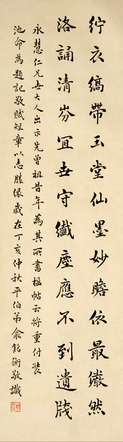 紵衣縞帶玉堂仙墨妙瞻依最儼然
洛誦清芬宜世守纖塵應不到遺牋
永慧仁兄世大人出示先曾祖昔年為其所書楹帖云將重付裝
池命為題記敬賦短章以志勝緣歲在丁亥仲秋平伯弟俞銘衡敬識